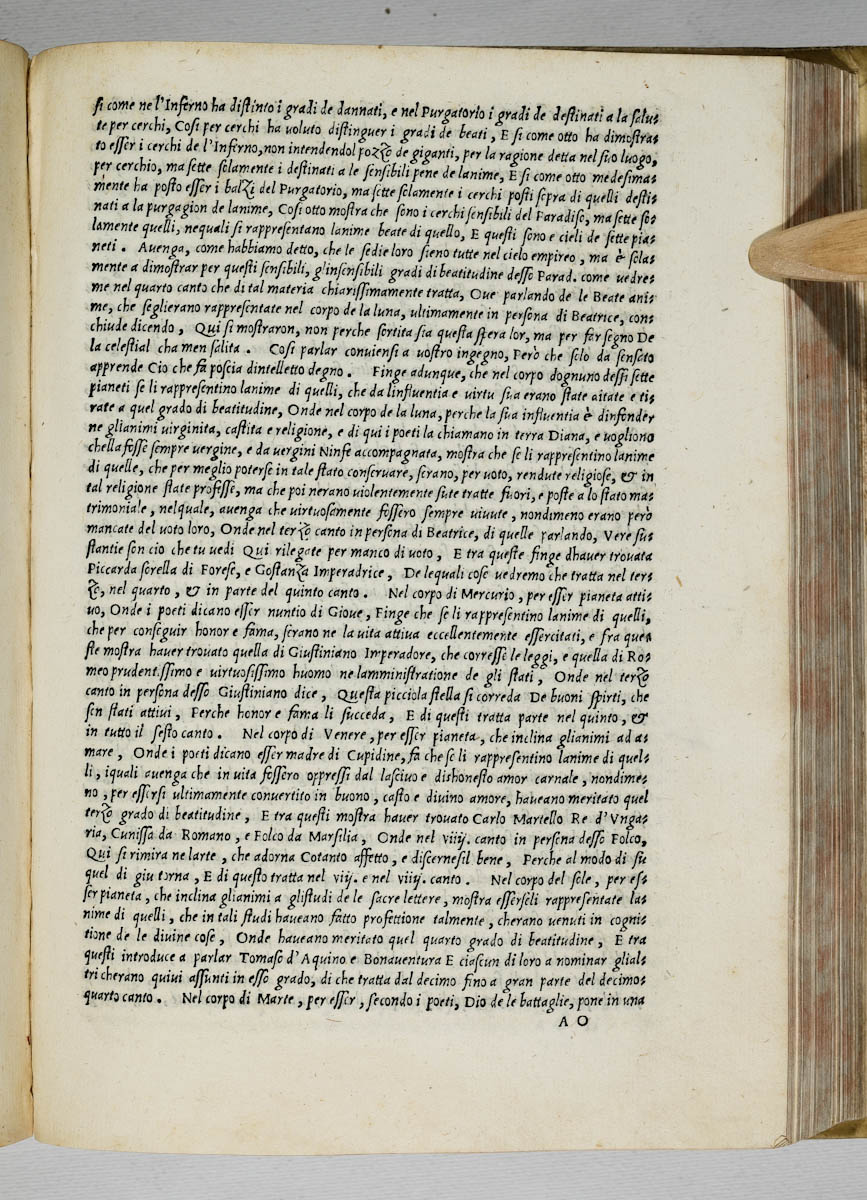 si come ne l'Inferno ha distinto i gradi de dannati, e nel Purgatorio i gradi de destinati a la salu=
te per cerchi, Cosi per cerchi ha voluto distinguer i gradi de beati, E si come otto ha dimostra=
to esser i cerchi de l'Inferno, non intendendol pozzo de giganti, per la ragione detta nel suo luogo,
per cerchio, ma sette solamente i destinati a le sensibili pene de lanime, E si come otto medesima=
mente ha posto esser i balzi del Purgatorio, ma sette solamente i cerchi posti sopra di quelli desti=
nati a la purgagion de lanime, Cosi otto mostra che sono i cerchi sensibili del Paradiso, ma sette so=
lamente quelli, nequali si rappresentano lanime beate di quello, E questi sono e cieli de sette pia=
neti. Auenga, come habbiamo detto, che le sedie loro sieno tutte nel cielo empireo, ma è sola=
mente a dimostrar per questi sensibili, gl'insensibili gradi di beatitudine desso Parad. come uedre=
me nel quarto canto che di tal materia chiarissimamente tratta, Oue parlando de le Beate ani=
me, che seglierano rappresentate nel corpo de la luna, ultimamente in persona di Beatrice, con=
chiude dicendo, Qui si mostraron, non perche sortita sia questa spera lor, ma per far segno De
la celestial cha men salita. Cosi parlar conuiensi a uostro ingegno, Però che solo da sensato
apprende Cio che fa poscia dintelletto degno. Finge adunque, che nel corpo dognuno dessi sette
pianeti se li rappresentino lanime di quelli, che da linfluentia e uirtu sua erano state aitate e ti=
rate a quel grado di beatitudine, Onde nel corpo de la luna, perche la sua influentia è dinfonder
ne glianimi uirginita, castita e religione, e di qui i poeti la chiamano in terra Diana, e uogliono
chella fosse sempre uergine, e da uergini Ninfe accompagnata, mostra che se li rappresentino lanime
di quelle, che per meglio poterse in tale stato conseruare, serano, per uoto, rendute religiose, & in
tal religione state professe, ma che poi nerano uiolentemente sute tratte fuori, e poste a lo stato ma=
trimoniale, nelquale, auenga che uirtuosamente fossero sempre uiuute, nondimeno erano però
mancate del uoto loro, Onde nel terzo canto in persona di Beatrice, di quelle parlando, Vere sus
stantie son cio che tu uedi Qui rilegate per manco di uoto, E tra queste finge dhauer trouata
Piccarda sorella di Forese, e Gostanza Imperadrice, De lequali cose uedremo che tratta nel ter=
zo, nel quarto, & in parte del quinto canto. Nel corpo di Mercurio, per esser pianeta atti=
uo, Onde i poeti dicano esser nuntio di Gioue, Finge che se li rappresentino lanime di quelli,
che per conseguir honor e fama, serano ne la uita attiua eccellentemente essercitati, e fra que=
ste mostra hauer trouato quella di Giustiniano Imperadore, che corresse le leggi, e quella di Ro=
meo prudentissimo e uirtuosissimo huomo ne lamministratione de gli stati, Onde nel terzo
canto in persona desso Giustiniano dice, Questa picciola stella si correda De buoni spirti, che
son stati attiui, Perche honor e fama li succeda, E di questi tratta parte nel quinto, &
in tutto il sesto canto. Nel corpo di Venere, per esser pianeta, che inclina glianimi ad a=
mare, Onde i poeti dicano esser madre di Cupidine, fa che se li rappresentino lanime di quel=
li, iquali auenga che in uita fossero oppressi dal lasciuo e dishonesto amor carnale, nondime=
no, per essersi ultimamente conuertito in buono, casto e diuino amore, haueano meritato quel
terzo grado di beatitudine, E tra questi mostra hauer trouato Carlo Martello Re d'Vnga=
ria, Cunissa da Romano, e Folco da Marsilia, Onde nel viiij. canto in persona desso Folco,
Qui si rimira ne larte, che adorna Cotanto affetto, e discernesil bene, Perche al modo di su
quel di giu torna, E di questo tratta nel viij. e nel viiij. canto. Nel corpo del sole, per es=
ser pianeta, che inclina glianimi a glistudi de le sacre lettere, mostra esserseli rappresentate la=
nime di quelli, che in tali studi haueano fatto profettione talmente, cherano uenuti in cogni=
tione de le diuine cose, Onde haueano meritato quel quarto grado di beatitudine, E tra
questi introduce a parlar Tomaso d'Aquino e Bonauentura E ciascun di loro a nominar glial=
tri cherano quiui assunti in esso grado, di che tratta dal decimo fino a gran parte del decimo=
quarto canto. Nel corpo di Marte, per esser, secondo i poeti, Dio de le battaglie, pone in una
A O